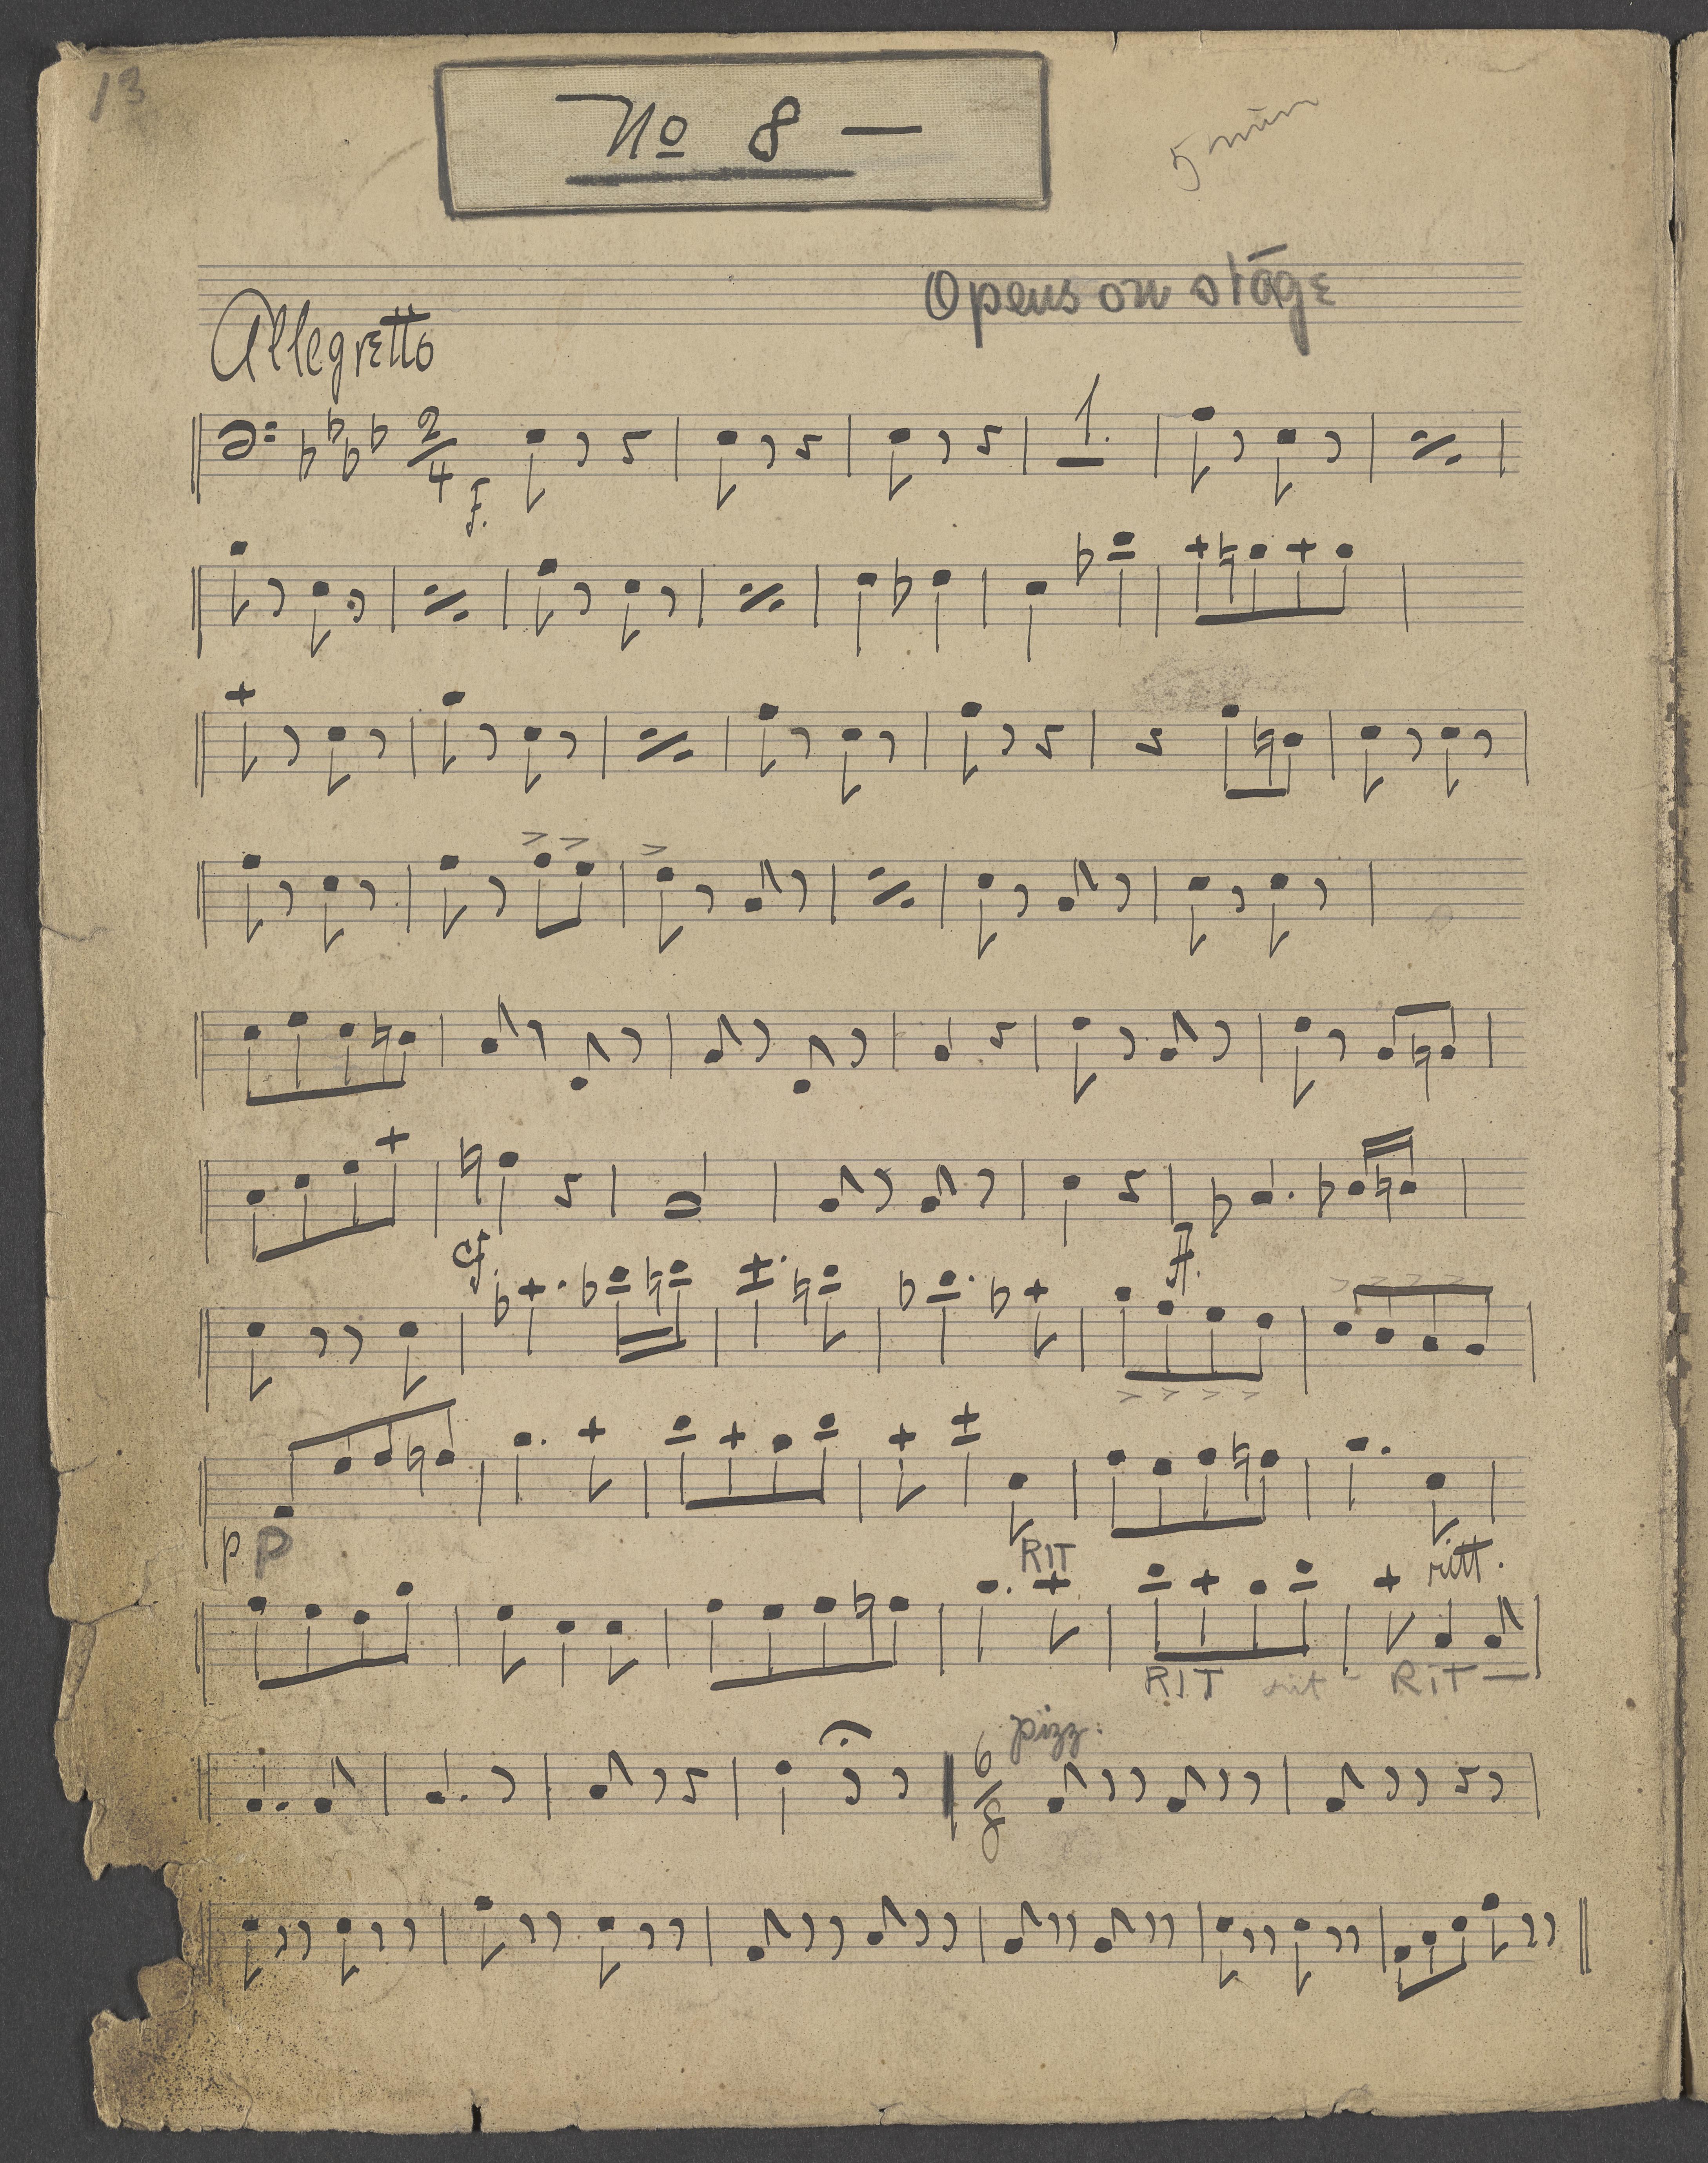 13
No 8 —
5 min
Opens on stage
Allegretto
2/4
1.
f.
ff.
p P
RIT
ritt.
RIT rit - RIT —
pizz:
6/8